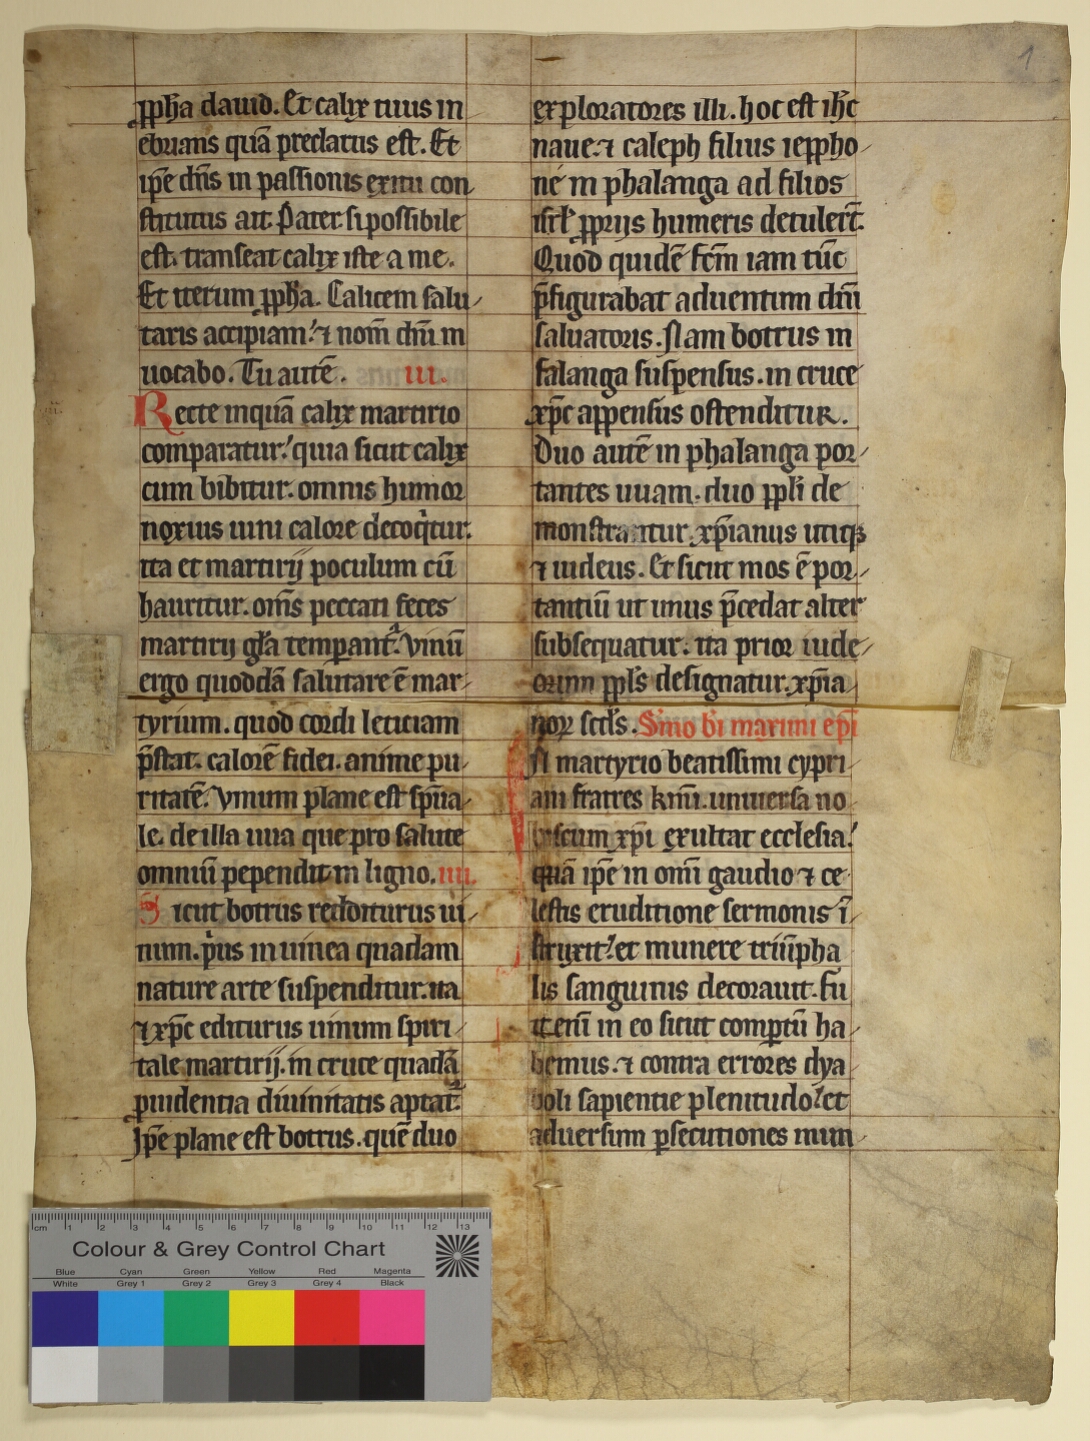 ꝓph̄a dauid. Et calix tuus in
ebrians quā preclarus est. Et
ip̄e dn̄s in passionis exitu con
stitutus ait. Pater si possibile
est. transeat calix iste a me.
Et iterum ꝓph̄a. Calicem salu
taris accipiam. ⁊ nom̄ dn̄i in
uocabo. Tu autē. iii.
Recte inquā calix martirio
comparatur. quia sicut calix
cum bibitur. omnis humor
noxius uini calore decoqͥtur.
ita et martirij poculum cū
hauritur. om̄s peccati feces
martirij gr̄a temperantᷣ. Vinū
ergo quoddā salutare ē mar
tyrium. quod cordi leticiam
p̄stat. calorē fidei. anime pu
ritatē. Vinum plane est sp̄ua
le. de illa uua que pro salute
omniū pependit in ligno. iiii.
Sicut botrus redditurus ui
num. pͥus in uinea quadam
nature arte suspenditur. ita
⁊ xp̄c editurus uinum spiri
tale martirij. in cruce quadā
ꝓuidentia diuinitatis aptatᷣ.
Ip̄e plane est botrus. quē duo
exploratores illi. hoc est ih̄c
naue. ⁊ caleph filius ieppho
ne in phalanga ad filios
isrl̄ ꝓprijs humeris detulerт̄.
Quod quidē fc̄m iam tūc
p̄figurabat aduentum dn̄i
saluatoris. Nam botrus in
falanga suspensus. in cruce
xp̄c appensus ostenditur.
Duo autē in phalanga por
tantes uuam. duo ppl̄i de
monstrantur. xp̄ianus utiqꝫ
⁊ iudeus. Et sicut mos ē por
tantiū ut unus p̄cedat alter
subsequatur. ita prior iude
orum ppl̄s designatur. xp̄ia
noꝝ scd̄s. Sm̄o bi maximi ep̄i
In martyrio beatissimi cypri
ani fratres km̄i. uniuersa no
biscum xp̄i exultat ecclesia.
quā ip̄e in omī gaudio ⁊ ce
lestis eruditione sermonis ī
struxit. et munere triūpha
lis sanguinis decorauit. Fu
it enī in eo sicut comꝑtū ha
bemus. ⁊ contra errores dya
boli sapientie plenitudo. et
aduersum ꝑsecutiones mun
1
cm 1 2 3 4 5 6 7 8 9 10 11 12 13
Colour & Grey Control Chart
Blue Cyan Green Yellow Red Magenta
White Grey 1 Grey 2 Grey 3 Grey 4 Black